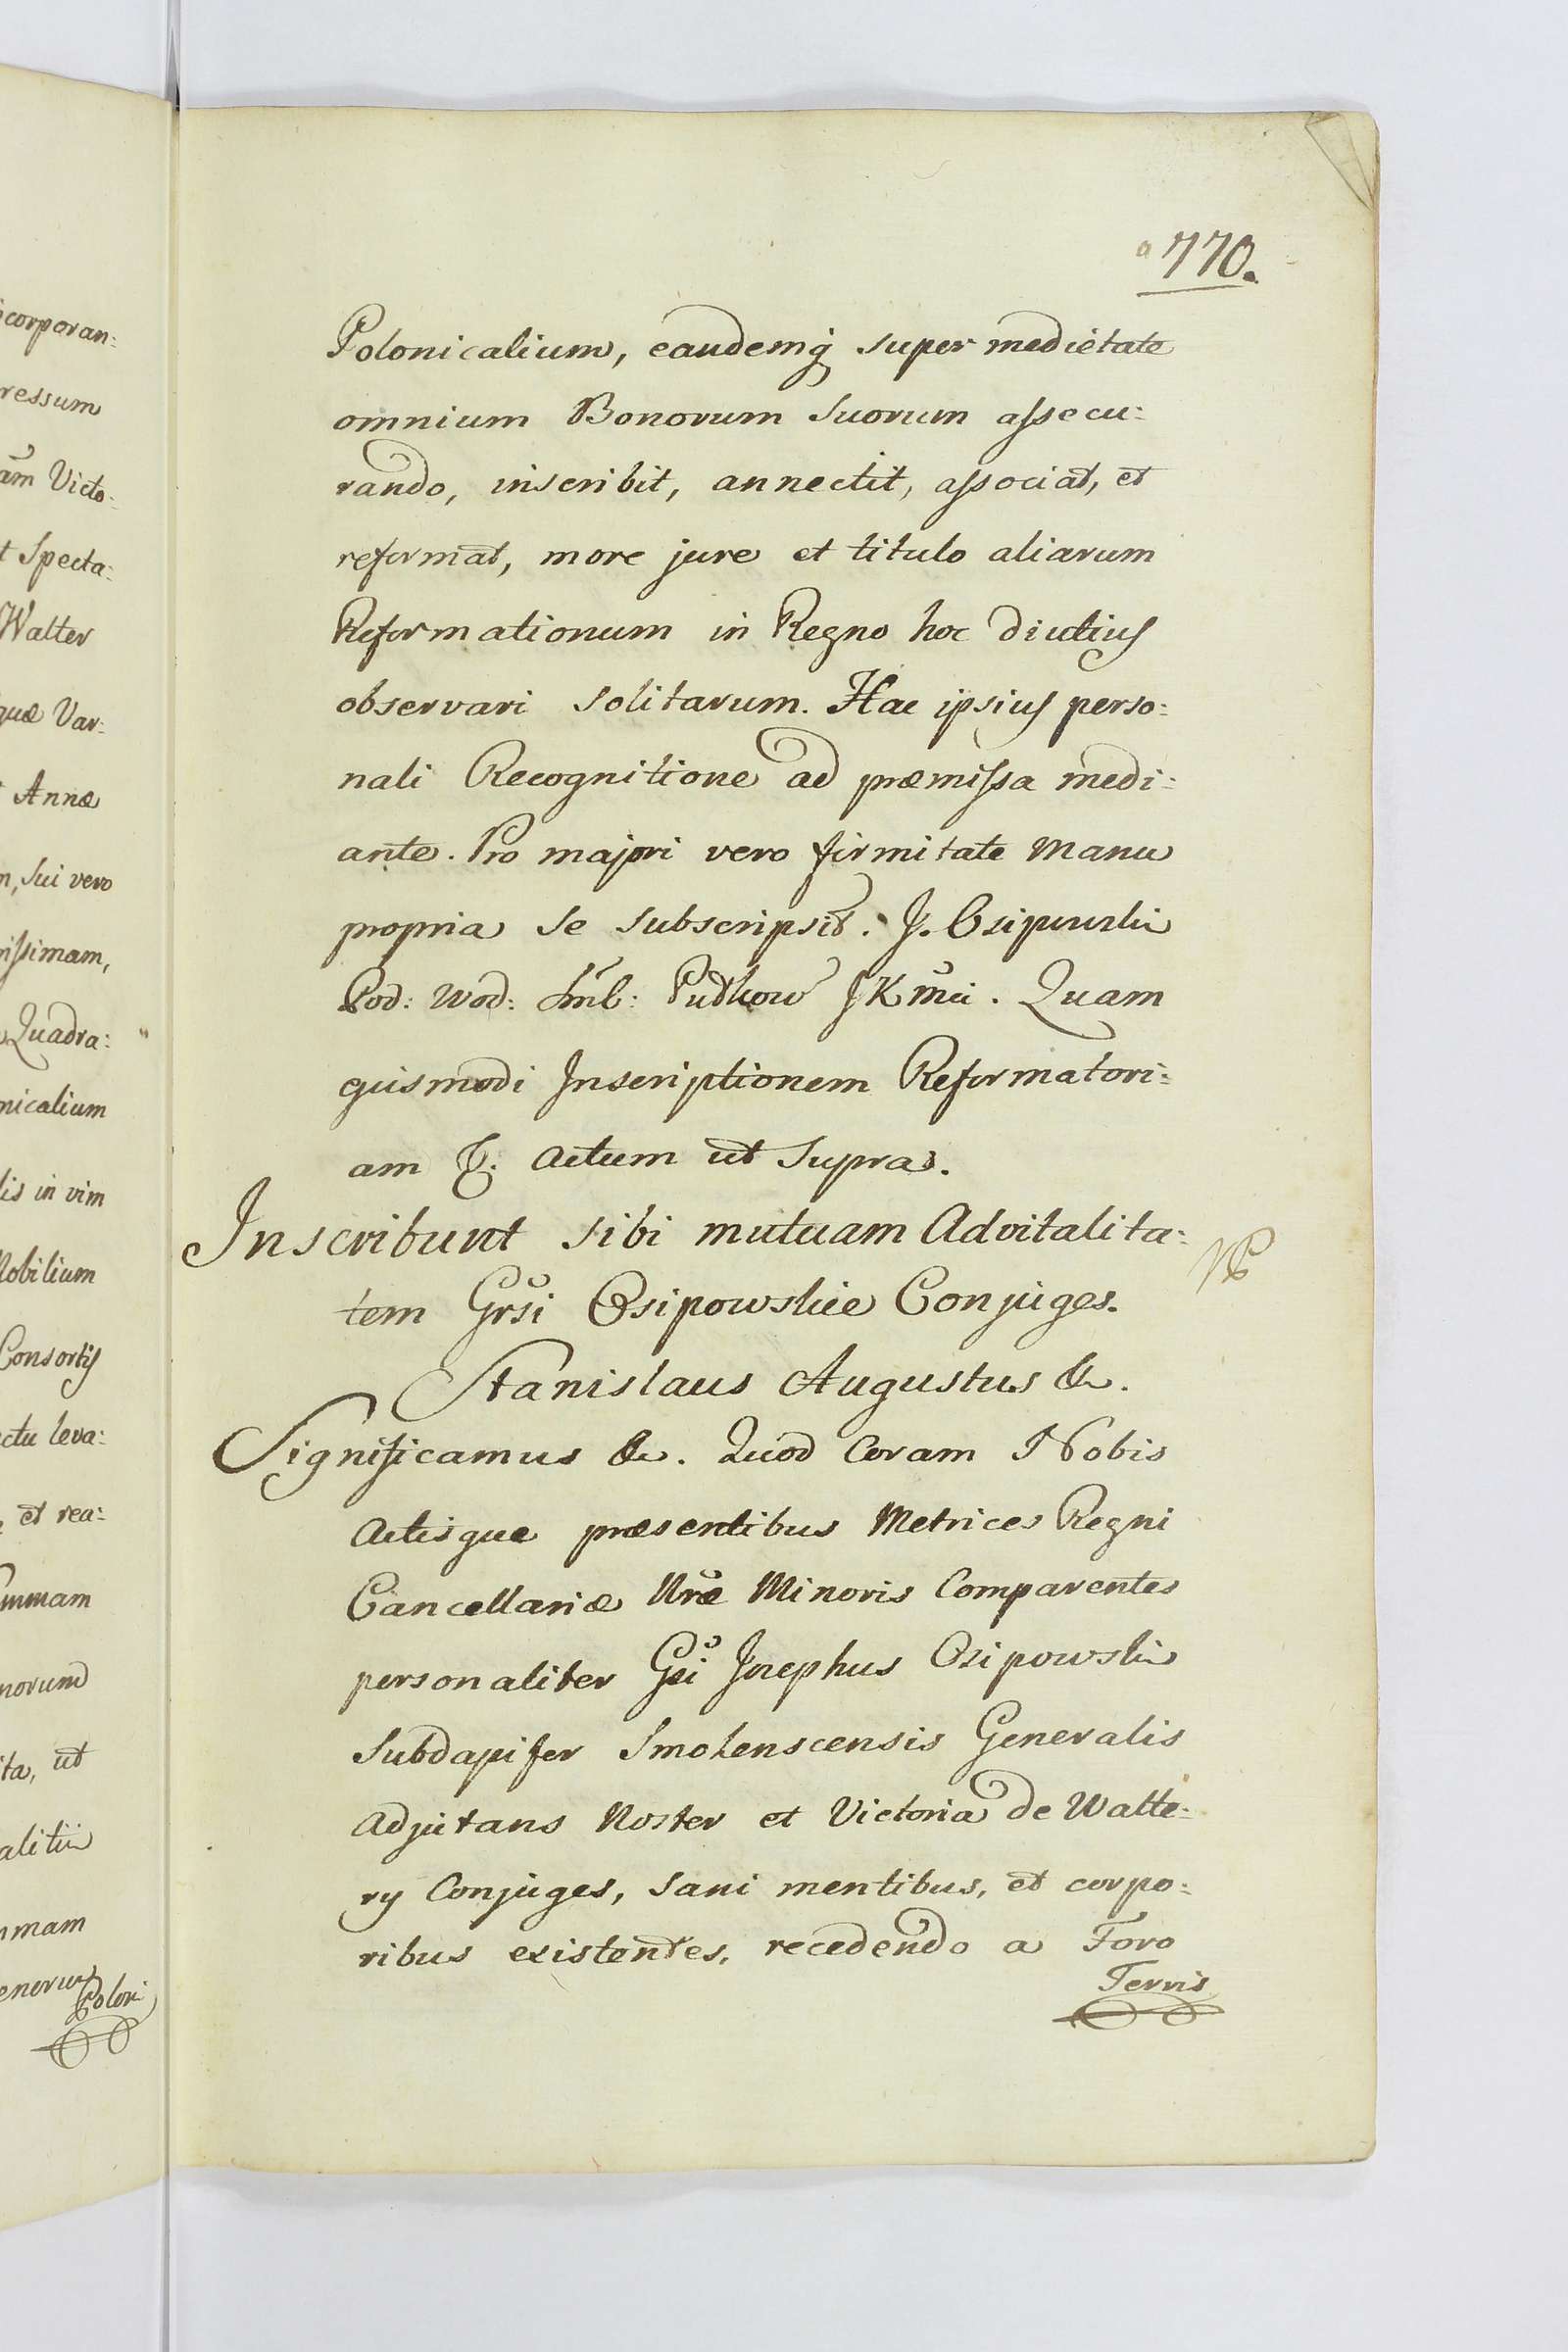 corporan:
ressum
am Victo:
t Specta:
Walter
quæ Var:
Annæ
n, Sui vero
rissimam,
Quadra:
nicalium
lis in vim
Nobilium
Consortis
ctu leva:
et rea:
ummam
norum
ita, ut
alitii
mmam
enorum
Poloni
770.
Polonicalium, eandemq́ super medietate
omnium Bonorum Suorum assecu:
rando, inscribit, annectit, associat, et
reformat, more jure et titulo aliarum
Reformationum in Regno hoc diutius
observari solitarum. Hac ipsius perso:
nali Recognitione ad præmissa medi:
ante. Pro majori vero firmitate Manu
propria Se Subscripsit. J. Osipowski
Pod: Wod: Sml: JKMci. Quam
quismodi Inscriptionem Reformatori:
am &. Actum ut Supra.
Inscribunt sibi mutuam Advitalita:
tem Grsi Osipowskie Conjuges.
Stanislaus Augustus &.
Significamus &. Quod Coram Nobis
Actisque præsentibus Metrices Regni
Cancellariæ Nræ Minoris Comparentes
personaliter Gsi Josephus Osipowski
Subdapifer Smolenscensis Generalis
Adjutans Noster et Victoria de Walte:
ry Conjuges, Sani mentibus, et corpo:
ribus existentes, recedendo a Foro
Terris